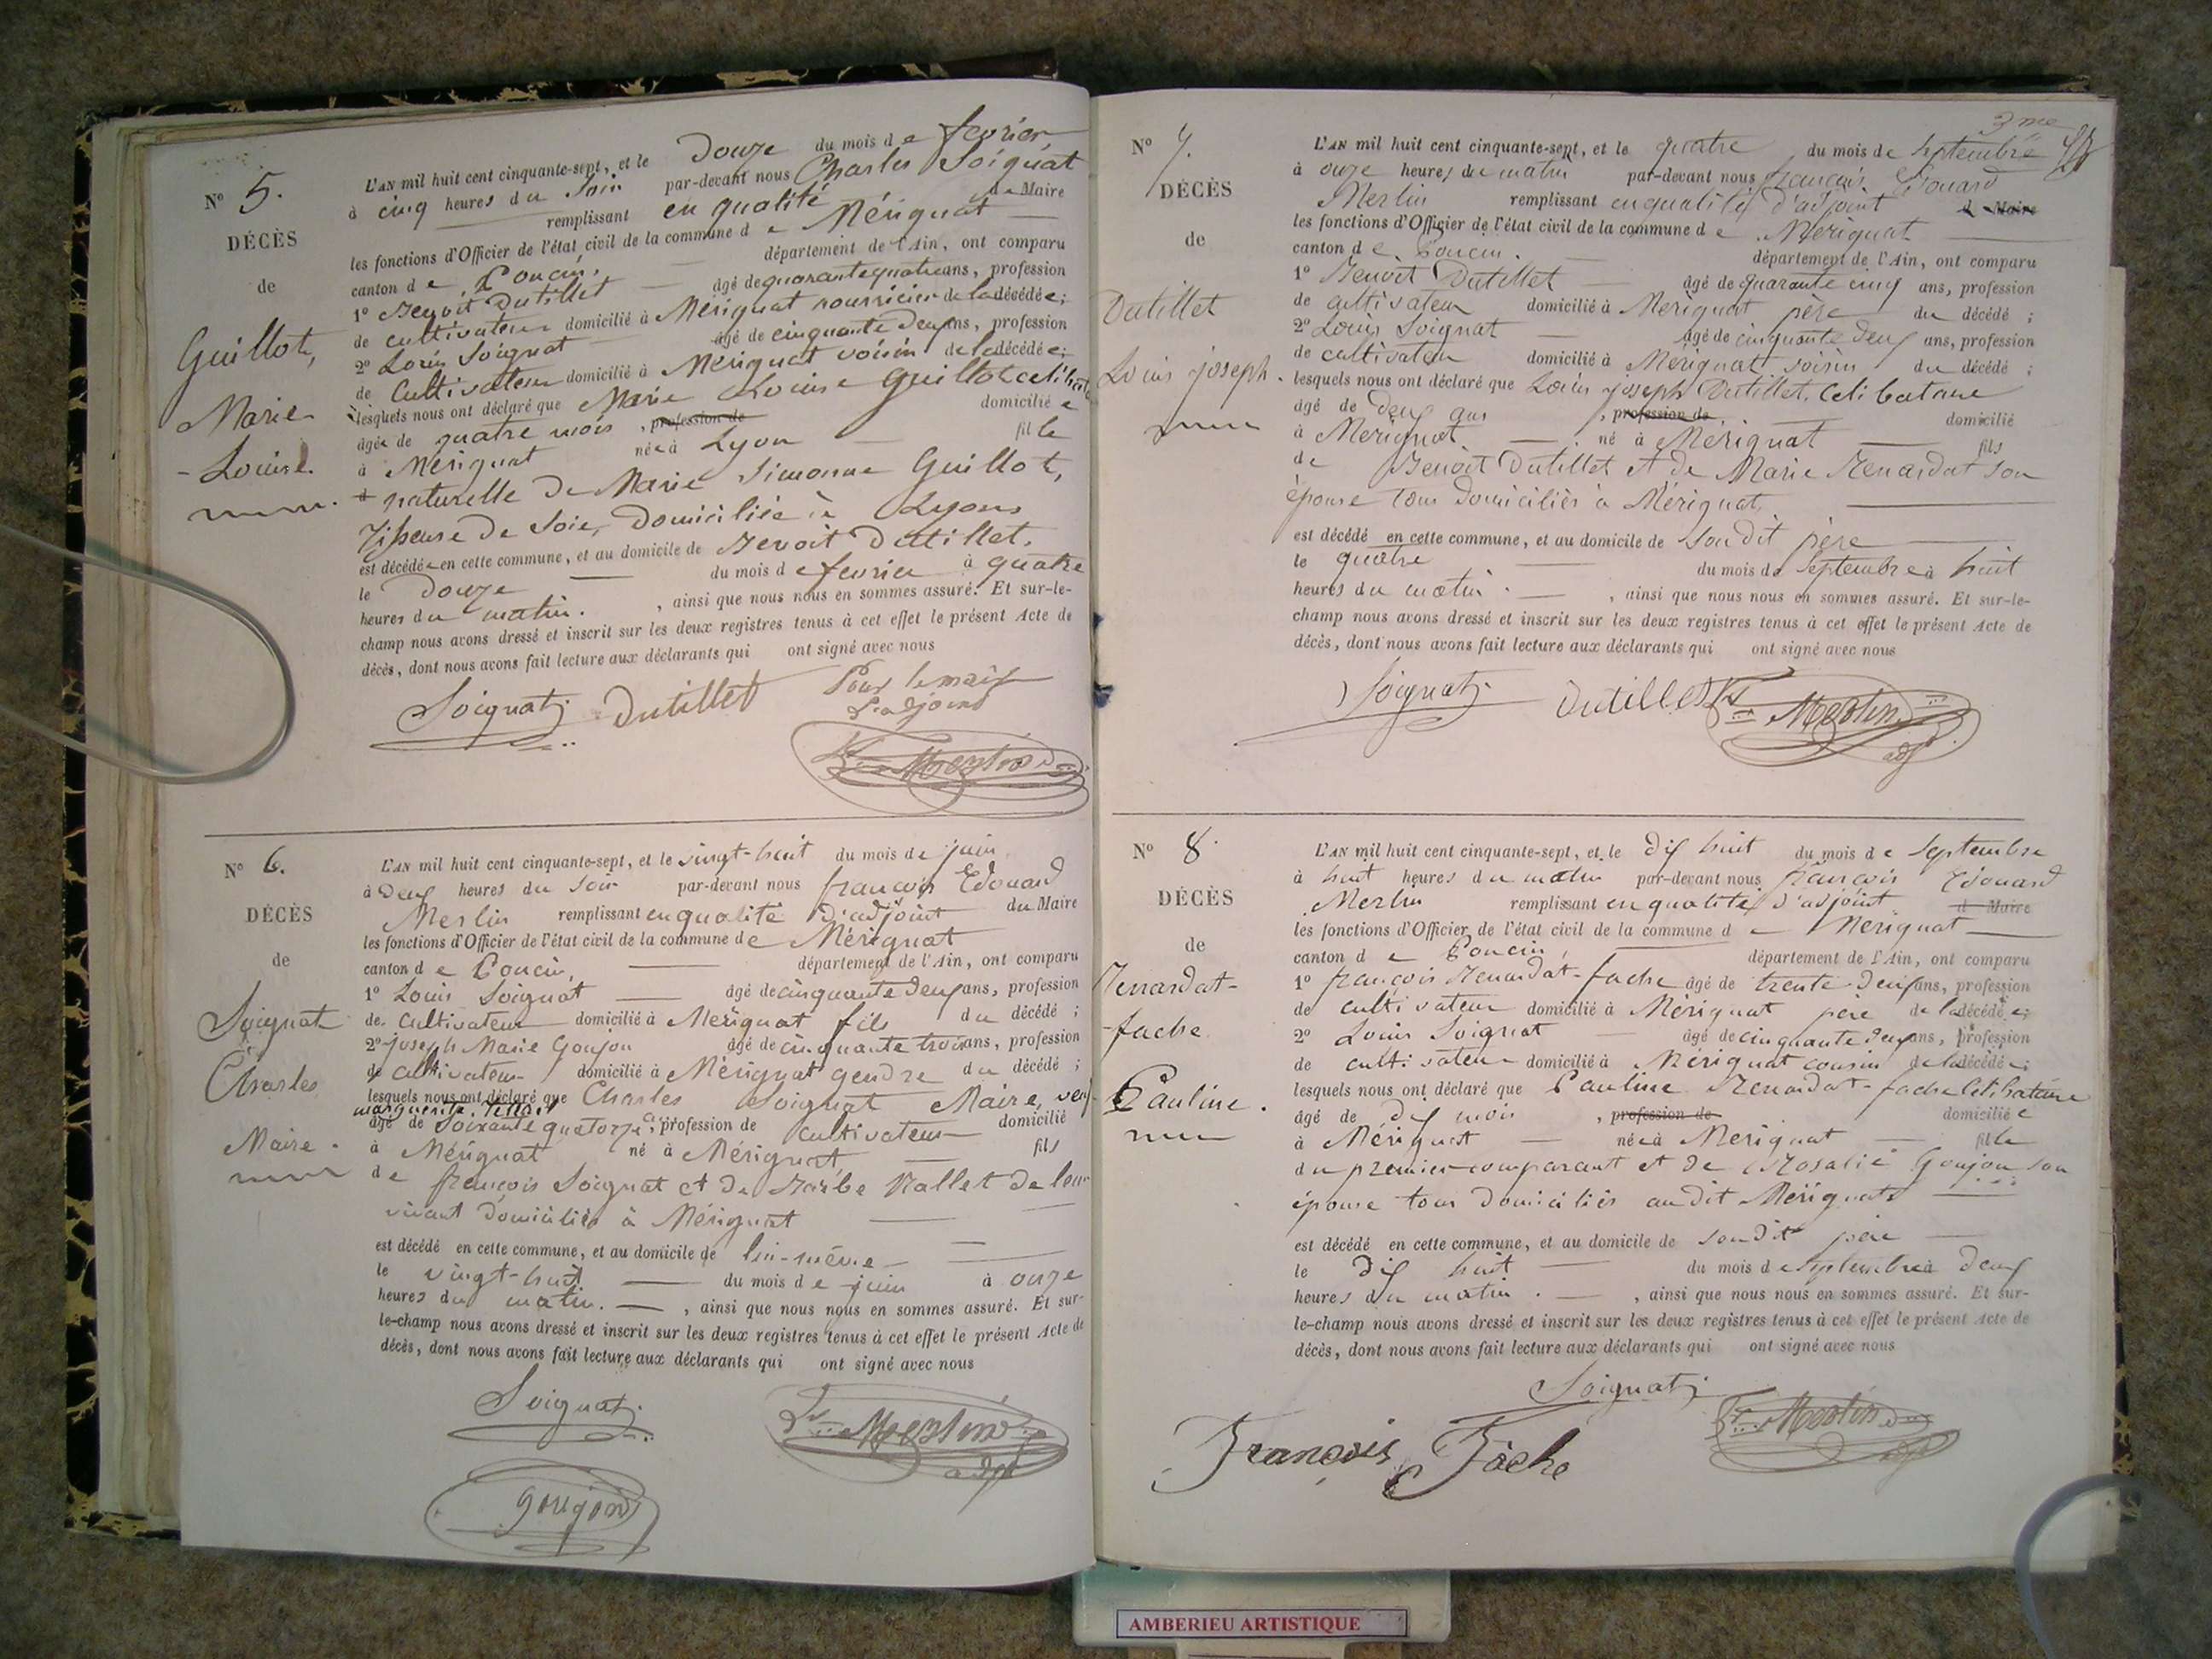 N° 5.
DÉCÈS
de
Guillot,
Marie
-Louise.
L'AN mil huit cent cinquante-sept, et le Douze du mois de fevrier
à cinq heures du Soir par-devant nous Charles Soignat
remplissant en qualité de Maire
les fonctions d'Officier de l'état civil de la commune de Mérignat
canton de Poncin, département de l'Ain, ont comparu
1° Benoit Dutillet âgé de quarante quatre ans, profession
de cultivateur domicilié à Mérignat nourricier de la décédée;
2° Louis Soignat âgé de cinquante deux ans, profession
de Cultivateur domicilié à Mérignat voisin de la décédée;
lesquels nous ont déclaré que Marie Louise Guillot celibataire
âgée de quatre mois, profession de domiciliée
à Mérignat née à Lyon fille
naturelle de Marie Simonne Guillot,
Tisseuse de Soie, Domiciliée à Lyon
est décédée en cette commune, et au domicile de Benoit Dutillet.
le Douze du mois de fevrier à quatre
heures du matin. , ainsi que nous nous en sommes assuré. Et sur-le-
champ nous avons dressé et inscrit sur les deux registres tenus à cet effet le présent Acte de
décès, dont nous avons fait lecture aux déclarants qui ont signé avec nous
Soignat Dutillet Pour le maire
L'adjoint
Merlin
N° 6.
DÉCÈS
de
Soignat
Charles
Maire.
L'AN mil huit cent cinquante-sept, et le vingt-huit du mois de juin
à Deux heures du Soir par-devant nous françois Edouard
Merlin remplissant en qualité d'adjoint du Maire
les fonctions d'Officier de l'état civil de la commune de Mérignat
canton de Poncin, département de l'Ain, ont comparu
1° Louis Soignat âgé de cinquante deux ans, profession
de Cultivateur domicilié à Mérignat fils du décédé;
2° joseph Marie Goujon âgé de cinquante trois ans, profession
de cultivateur domicilié à Mérignat gendre du décédé;
lesquels nous ont déclaré que Charles Soignat Maire, veuf
marguerite
âgé de Soixante quatorze ans, profession de cultivateur domicilié
à Mérignat né à Mérignat fils
de françois Soignat et de Vallet de leur
vivant domiciliés à Mérignat
est décédé en cette commune, et au domicile de lui-même
le vingt-huit du mois de juin à onze
heures du matin. , ainsi que nous nous en sommes assuré. Et sur-
le-champ nous avons dressé et inscrit sur les deux registres tenus à cet effet le présent Acte de
décès, dont nous avons fait lecture aux déclarants qui ont signé avec nous
Soignat Merlin
adjt
goujon
3me
N° 7.
DÉCÈS
de
Dutillet
Louis joseph.
L'AN mil huit cent cinquante-sept, et le quatre du mois de Septembre
à onze heures du matin par-devant nous françois Edouard
Merlin remplissant en qualité d'adjoint d Maire
les fonctions d'Officier de l'état civil de la commune de Mérignat
canton de Poncin. département de l'Ain, ont comparu
1° Benoit Dutillet âgé de quarante cinq ans, profession
de cultivateur domicilié à Mérignat père du décédé;
2° Louis Soignat âgé de cinquante deux ans, profession
de cultivateur domicilié à Mérignat voisin du décédé;
lesquels nous ont déclaré que Louis joseph Dutillet, Celibataire
âgé de Deux ans, profession de domicilié
à Mérignat né à Mérignat fils
de Benoit Dutillet et de Marie Renardat son
épouse tous domiciliés à Mérignat,
est décédé en cette commune, et au domicile de Son dit père
le quatre du mois de Septembre à huit
heures du matin. , ainsi que nous nous en sommes assuré. Et sur-le-
champ nous avons dressé et inscrit sur les deux registres tenus à cet effet le présent Acte de
décès, dont nous avons fait lecture aux déclarants qui ont signé avec nous
Soignat Dutillet Merlin
adjt
N° 8.
DÉCÈS
de
Renardat-
-fache
Pauline.
L'AN mil huit cent cinquante-sept, et le dix huit du mois de Septembre
à huit heures du matin par-devant nous françois Edouard
Merlin remplissant en qualité d'adjoint d Maire
les fonctions d'Officier de l'état civil de la commune de Mérignat
canton de Poncin, département de l'Ain, ont comparu
1° françois Renardat-fache âgé de trente-deux ans, profession
de cultivateur domicilié à Mérignat père de la décédée;
2° Louis Soignat âgé de cinquante deux ans, profession
de cultivateur domicilié à Mérignat cousin de la décédée;
lesquels nous ont déclaré que Pauline Renardat-fache Celibataire
âgé de dix mois, profession de domiciliée
à Mérignat née à Mérignat fille
du premier comparant et de Rosalie Goujon son
épouse tous domiciliés audit Mérignat
est décédé en cette commune, et au domicile de son dit père
le dix huit du mois de Septembre à deux
heures du matin. , ainsi que nous nous en sommes assuré. Et sur-
le-champ nous avons dressé et inscrit sur les deux registres tenus à cet effet le présent Acte de
décès, dont nous avons fait lecture aux déclarants qui ont signé avec nous
Soignat
François Fache Merlin
adjt
AMBERIEU ARTISTIQUE